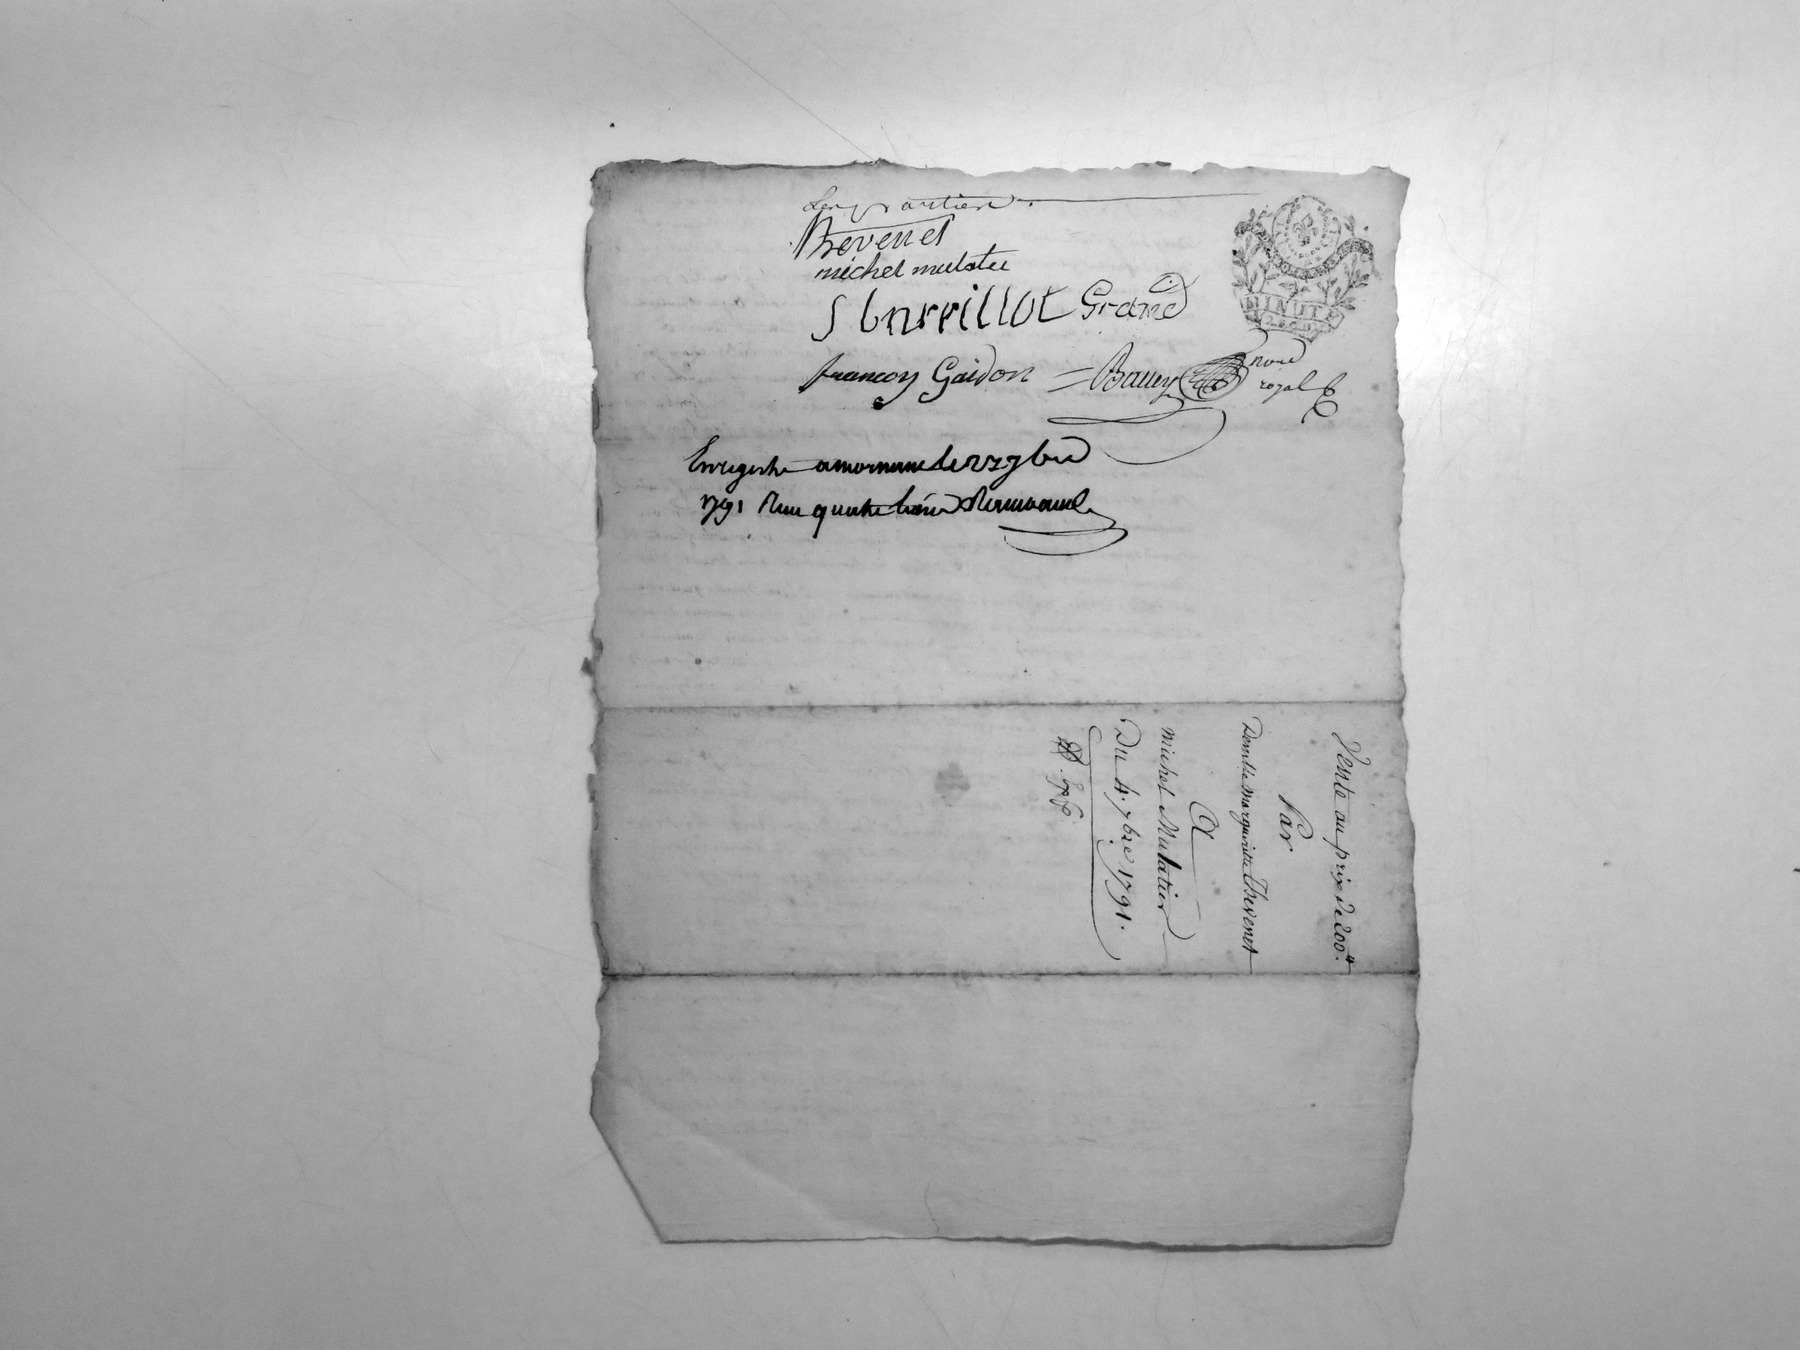 Les parties
Thevenet
michel mulatie
S barrillot Grand
francoy Gaidon Bauey nore
royal
Enregistré a mornant le 22 7bre
1791 Reçu quatre livres
MINUTE
Vente au prix de 200#
Par
Demlle Marguerite Thevenet
A
michel Mulatier
Du 4. 7bre 1791.